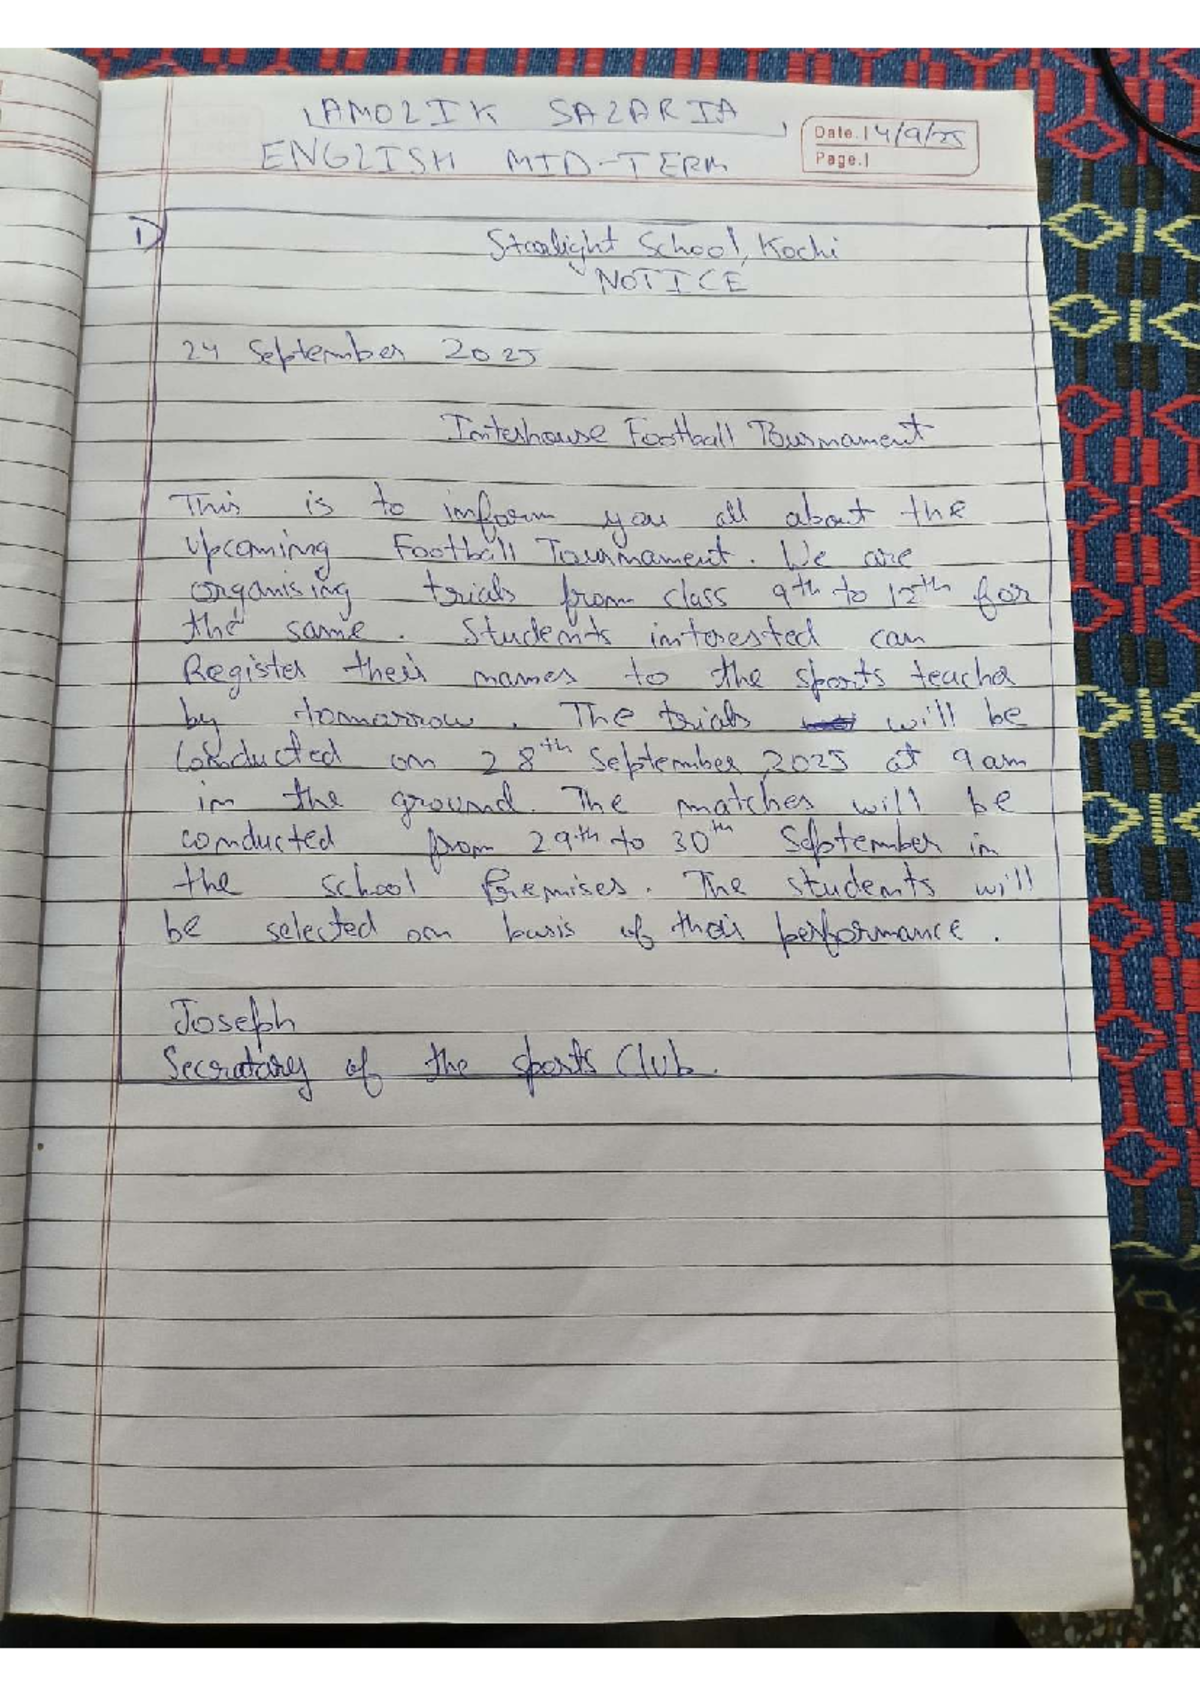 AMOLIK SAZARIA
ENGLISH MID-TERM
Date. 14/9/25
Page.1
1)
Starlight School, Kochi
NOTICE
24 September 2025
Interhouse Football Tournament
This is to inform you all about the
upcoming Football Tournament. We are
organising trials from class 9th to 12th for
the same. Students interested can
Register their names to the sports teacher
by tomorrow. The trials will be
Conducted on 28th September 2025 at 9am
in the ground. The matches will be
conducted from 29th to 30th September in
the school Premises. The students will
be selected on basis of their performance.
Joseph
Secratary of the sports Club.